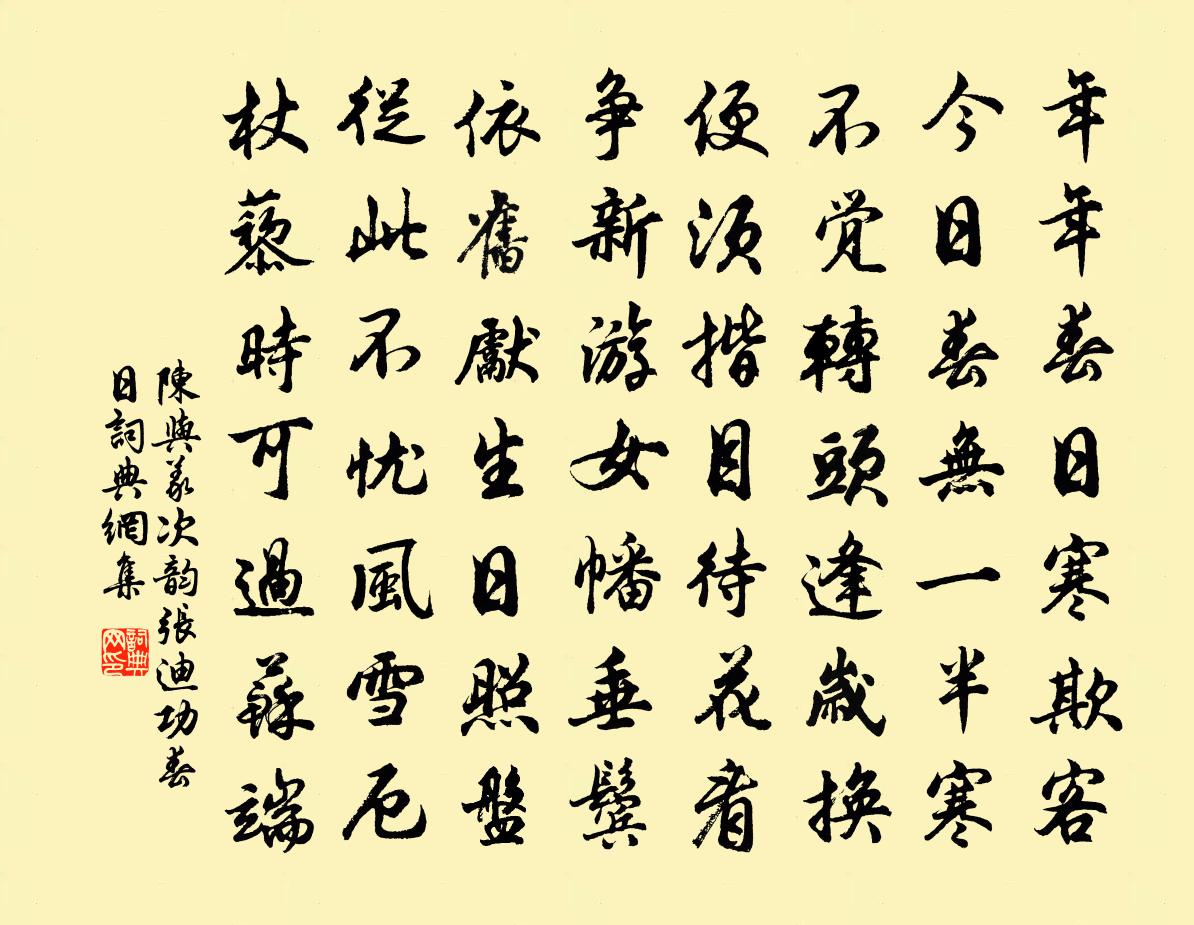 年年春日寒欺客
今日春無一半寒
不覚轉頭逢歲換
便須揩目待花看
争新游女幡垂鬢
依舊獻生日照盤
從此不忧風雪厄
杖藜時可過蘇端
陳與義次韵張迪功春
日詞典網集
詞典网印